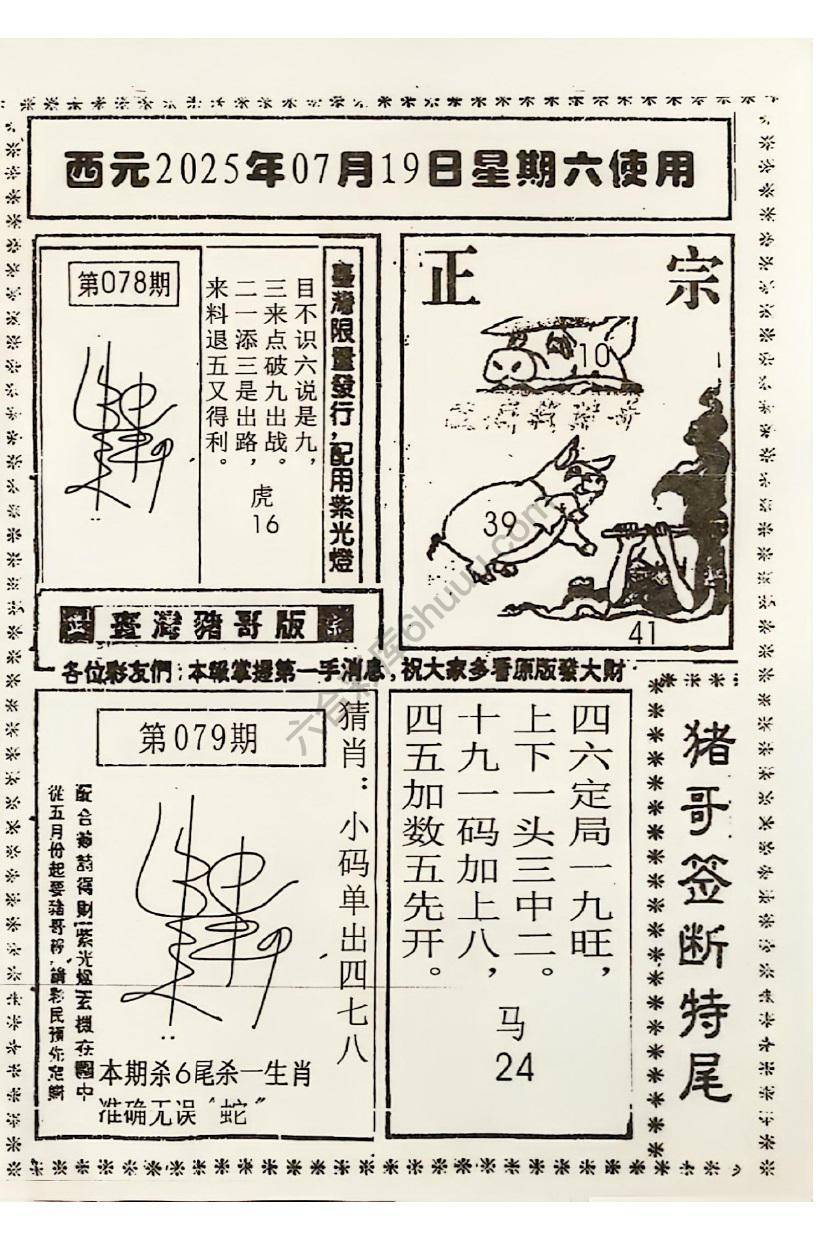 西元2025年07月19日星期六使用
第078期
目不识六说是九，
三来点破九出战。
二一添三是出路，
来料退五又得利。
虎
16
臺灣限量發行，配用紫光燈
正宗
10
39
41
臺灣豬哥版
各位彩友們：本報掌握第一手消息，祝大家多看原版發大財
第079期
猜肖：小码单出四七八
從五月份起要豬哥
本期杀6尾杀一生肖
准确无误“蛇”
四六定局一九旺，
上下一头三中二。
十九一码加上八，
四五加数五先开。
马
24
猪哥签断特尾
六合彩库6huuu.com